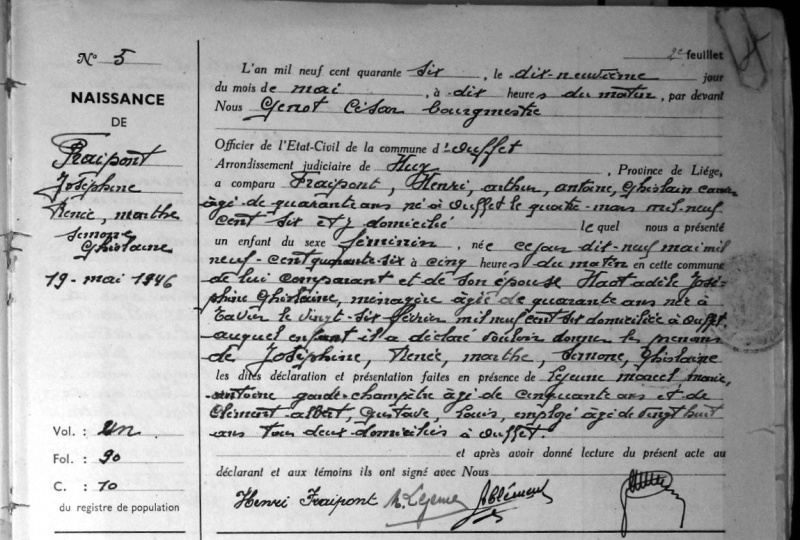 N° 5
NAISSANCE
DE
Fraipont
Joséphine
Renée, marthe
Simone
Ghislaine
19 - mai 1946
Vol. : un
Fol. : 90
C. : 10
du registre de population
2e feuillet
L'an mil neuf cent quarante six, le dix-neuvième jour
du mois de mai, à dix heures du matin, par devant
Nous Genot César bourgmestre
Officier de l'Etat-Civil de la commune d'Ouffet
Arrondissement judiciaire de Huy, Province de Liége,
a comparu Fraipont, Henri, arthur, antoine, Ghislain
âgé de quarante ans né à Ouffet le quatre mars mil neuf
cent six et y domicilié lequel nous a présenté
un enfant du sexe féminin, née ce jour dix-neuf mai mil
neuf-cent quarante-six à cinq heures du matin en cette commune
de lui comparant et de son épouse Haot adèle José-
phine Ghislaine, ménagère âgée de quarante ans née à
Tavier le vingt-six février mil neuf cent six domiciliée à Ouffet.
auquel enfant il a déclaré vouloir donner les prénoms
de Joséphine, Renée, marthe, Simone, Ghislaine
les dites déclaration et présentation faites en présence de Lejeune marcel marie,
antoine garde-champêtre âgé de cinquante ans et de
Clément albert, Gustave, Louis, employé âgé de vingt huit
ans tous deux domiciliés à Ouffet.
et après avoir donné lecture du présent acte au
déclarant et aux témoins ils ont signé avec Nous
Henri Fraipont M. Lejeune A Clément